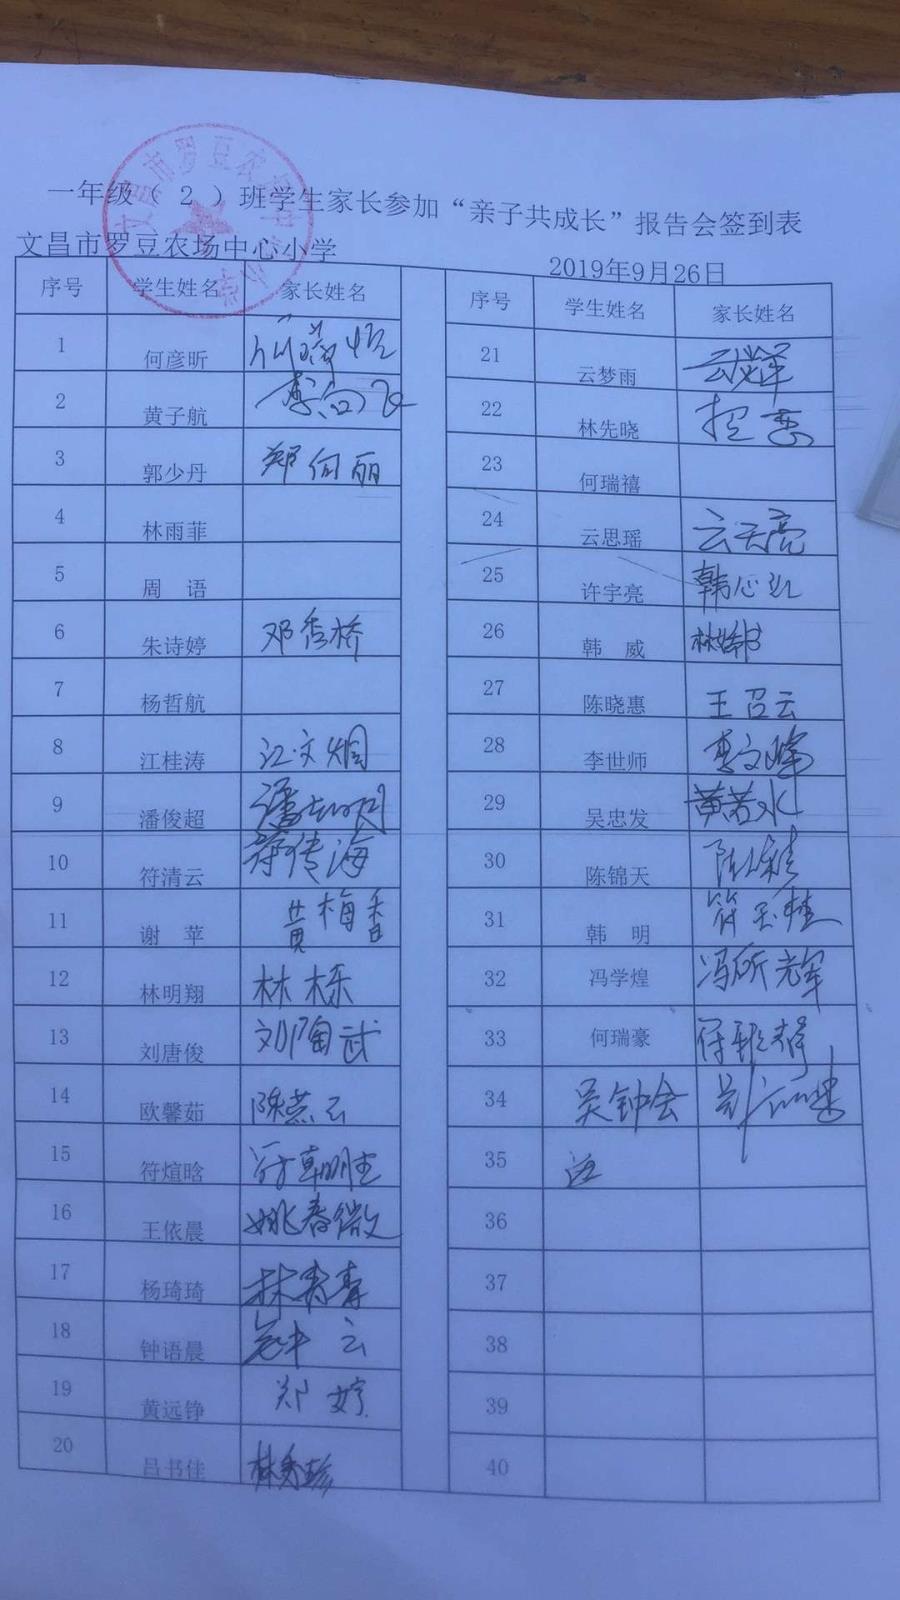 一年级（ 2 ）班学生家长参加“亲子共成长”报告会签到表
文昌市罗豆农场中心小学
2019年9月26日
序号 学生姓名 家长姓名
1 何彦昕
2 黄子航
3 郭少丹 郑向丽
4 林雨菲
5 周 语
6 朱诗婷 邓秀桥
7 杨哲航
8 江桂涛 江文炯
9 潘俊超
10 符清云 符传海
11 谢 苹 黄梅香
12 林明翔 林栎
13 刘唐俊 刘陶武
14 欧馨茹 陈燕云
15 符煊晗
16 王依晨 姚春微
17 杨琦琦 林青青
18 钟语晨
19 黄远铮 郑婷
20 吕书佳 林秀珍
序号 学生姓名 家长姓名
21 云梦雨
22 林先晓
23 何瑞禧
24 云思瑶 云天亮
25 许宇亮
26 韩 威
27 陈晓惠 王召云
28 李世师 李文峰
29 吴忠发 黄若水
30 陈锦天
31 韩 明 符玉桂
32 冯学煌 冯所光军
33 何瑞豪
34 吴钟会
35
36
37
38
39
40